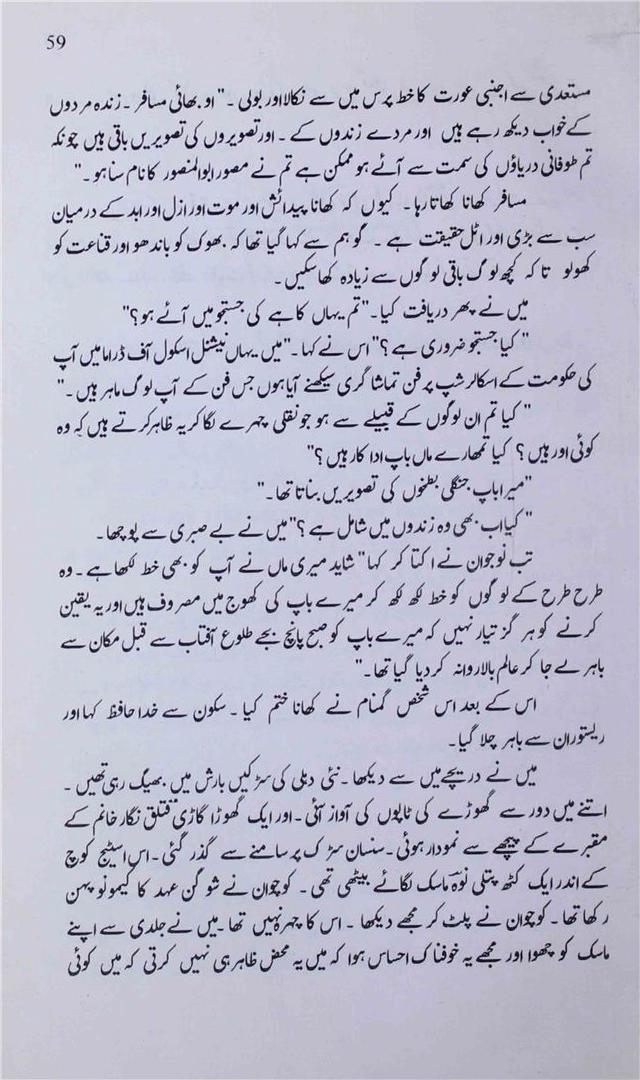 59
مستعدی سے اجنبی عورت کا خط پرس میں سے نکالا اور بولی ۔" او بھائی مسافر ۔ زندہ مردوں
کے خواب دیکھ رہے ہیں اور مردے زندوں کے ۔ اور تصویروں کی تصویریں باقی ہیں چونکہ
تم طوفانی دریاؤں کی سمت سے آئے ہو ممکن ہے تم نے مصور ابوالمنصور کا نام سنا ہو ۔"
مسافر کھانا کھاتا رہا ۔ کیوں کہ کھانا پیدائش اور موت اور ازل اور ابد کے درمیان
سب سے بڑی اور اٹل حقیقت ہے ۔ گو ہم سے کہا گیا تھا کہ بھوک کو باندھو اور قناعت کو
کھولو تا کہ کچھ لوگ باقی لوگوں سے زیادہ کھا سکیں ۔
میں نے پھر دریافت کیا ۔"تم یہاں کاہے کی جستجو میں آئے ہو؟"
"کیا جستجو ضروری ہے ؟" اس نے کہا ۔"میں یہاں نیشنل اسکول آف ڈراما میں آپ
کی حکومت کے اسکالرشپ پر فن تماشا گری سیکھنے آیا ہوں جس فن کے آپ لوگ ماہر ہیں ۔"
"کیا تم ان لوگوں کے قبیلے سے ہو جو نقلی چہرے لگا کر یہ ظاہر کرتے ہیں کہ وہ
کوئی اور ہیں ؟ کیا تمھارے ماں باپ اداکار ہیں ؟"
"میرا باپ جنگلی بطخوں کی تصویریں بناتا تھا ۔"
"کیا اب بھی وہ زندوں میں شامل ہے ؟" میں نے بے صبری سے پوچھا ۔
تب نوجوان نے اکتا کر کہا "شاید میری ماں نے آپ کو بھی خط لکھا ہے ۔ وہ
طرح طرح کے لوگوں کو خط لکھ لکھ کر میرے باپ کی کھوج میں مصروف ہیں اور یہ یقین
کرنے کو ہر گز تیار نہیں کہ میرے باپ کو صبح پانچ بجے طلوع آفتاب سے قبل مکان سے
باہر لے جا کر عالم بالا روانہ کر دیا گیا تھا ۔"
اس کے بعد اس شخص گمنام نے کھانا ختم کیا ۔ سکون سے خدا حافظ کہا اور
ریستوران سے باہر چلا گیا ۔
میں نے دریچے میں سے دیکھا ۔ نئی دہلی کی سڑکیں بارش میں بھیگ رہی تھیں ۔
اتنے میں دور سے گھوڑے کی ٹاپوں کی آواز آئی ۔ اور ایک گھوڑا گاڑی قتلق نگار خانم کے
مقبرے کے پیچھے سے نمودار ہوئی ۔ سنسان سڑک پر سامنے سے گذر گئی ۔ اس اسٹیج کوچ
کے اندر ایک کٹھ پتلی نوہ ماسک لگائے بیٹھی تھی ۔ کوچوان نے شوگن عہد کا کیمونو پہن
رکھا تھا ۔ کوچوان نے پلٹ کر مجھے دیکھا ۔ اس کا چہرہ نہیں تھا ۔ میں نے جلدی سے اپنے
ماسک کو چھوا اور مجھے یہ خوفناک احساس ہوا کہ میں یہ محض ظاہر ہی نہیں کرتی کہ میں کوئی